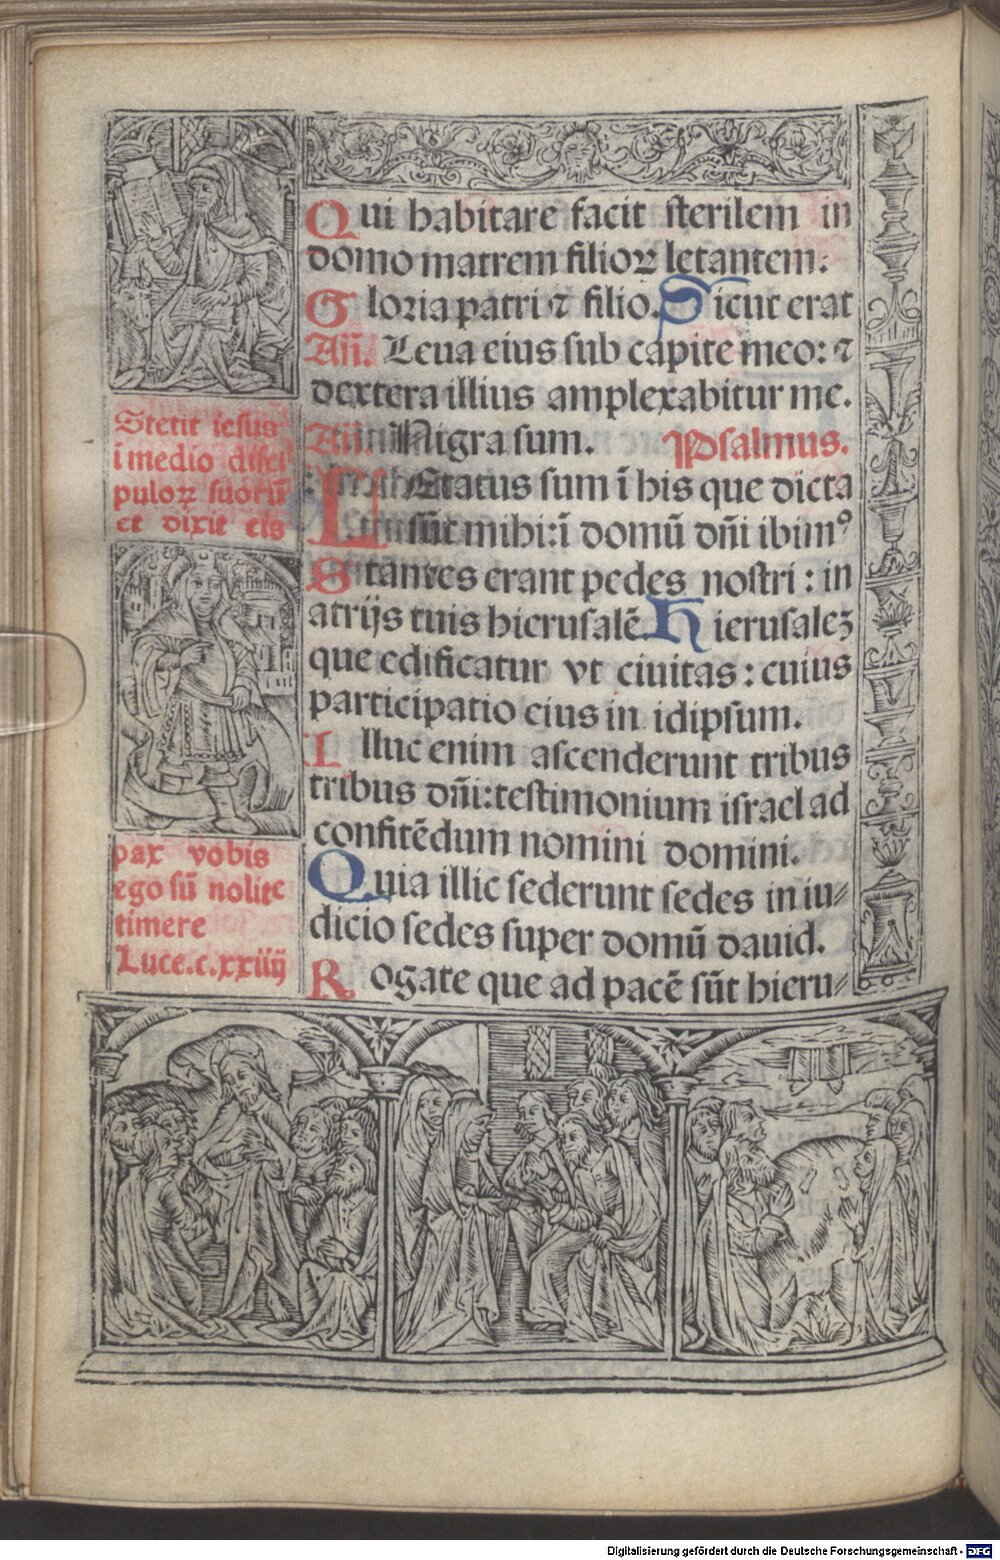 Qui habitare facit sterilem in
domo matrem filioꝝ letantem.
Gloria patri ⁊ filio. Sicut erat
Añ. Leua eius sub capite meo: ⁊
dextera illius amplexabitur me.
Añ Nigra sum. Psalmus.
LEtatus sum ī his que dicta
sūt mihi: ī domū dñi ibimꝰ
Stantes erant pedes nostri : in
atrijs tuis hierusalē. Hierusaleꝫ
que edificatur vt ciuitas : cuius
participatio eius in idipsum.
Illuc enim ascenderunt tribus
tribus dñi: testimonium israel ad
confitēdum nomini domini.
Quia illic sederunt sedes in iu⸗
dicio sedes super domū dauid.
Rogate que ad pacē sūt hieru⸗
Stetit iesus
i medio disci
puloꝝ suorū
et dixit eis
pax vobis
ego sū nolite
timere
Luce.c.xxiiij
Digitalisierung gefördert durch die Deutsche Forschungsgemeinschaft - DFG